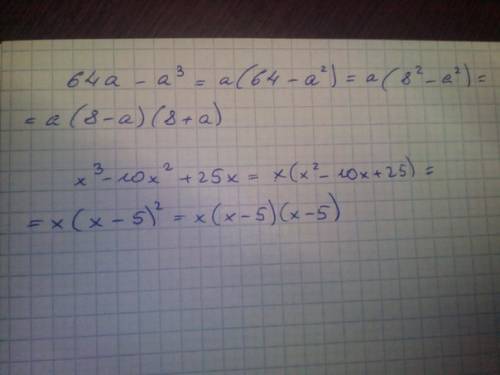 64a - a³ = a(64 - a²) = a(8² - a²) =
= a(8 - a)(8 + a)
x³ - 10x² + 25x = x(x² - 10x + 25) =
= x(x - 5)² = x(x - 5)(x - 5)